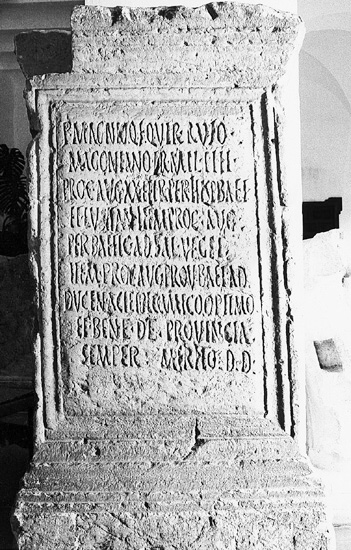 P MAGNIO Q F QVIR RVFO
MAGONIANO TR MIL IIII
PROC AVG XX HER PER HISP BAET
ET LVSITAN ITEM PROC AVG
PER BAETIC AD KAL VEGET
ITEM PROC AVG PROV BAET AD
DVCEN ACILI PLEC AMICO OPTIMO
ET BENE DE PROVINCIA
SEMPER MERITO D D